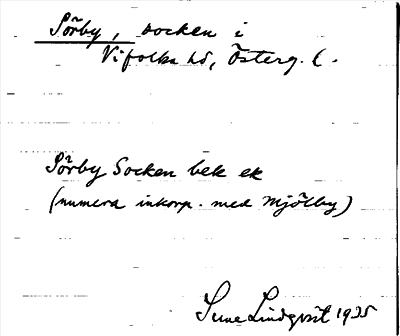 Sörby, socken i
Vifolka hd, Österg. l.
Sörby Socken bek ek
(numera inkorp. med Mjölby)
Sune Lindqvist 1925